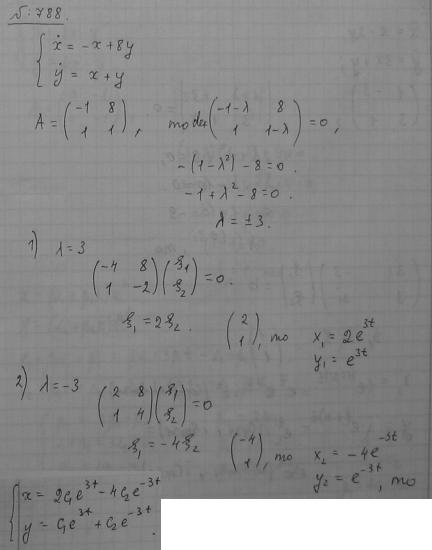 №788.
{ ẋ = -x + 8y
ẏ = x + y
A = ( -1 8 ; 1 1 ), то det ( -1-λ 8 ; 1 1-λ ) = 0,
-(1-λ²) - 8 = 0.
-1 + λ² - 8 = 0.
λ = ±3.
1) λ = 3
( -4 8 ; 1 -2 ) ( ξ₁ ; ξ₂ ) = 0.
ξ₁ = 2ξ₂. ( 2 ; 1 ), то x₁ = 2e^{3t}
y₁ = e^{3t}
2) λ = -3
( 2 8 ; 1 4 ) ( ξ₁ ; ξ₂ ) = 0
ξ₁ = -4ξ₂ ( -4 ; 1 ), то x₂ = -4e^{-3t}
y₂ = e^{-3t}, то
{ x = 2C₁e^{3t} - 4C₂e^{-3t}
y = C₁e^{3t} + C₂e^{-3t}.